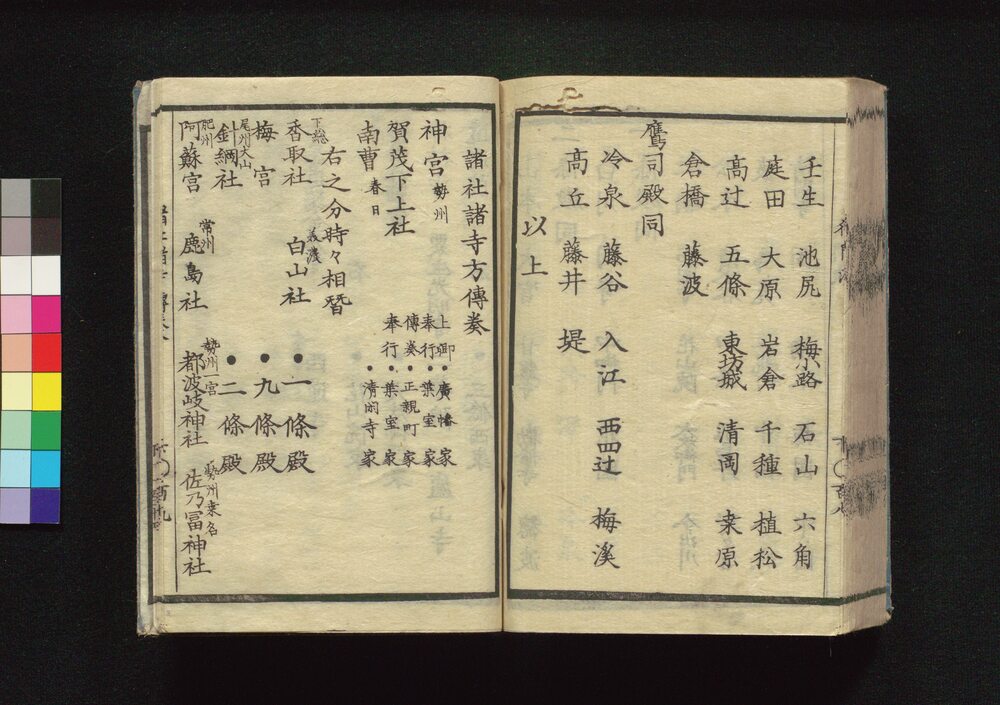 壬生 池尻 梅小路 石山 六角
庭田 大原 岩倉 千種 植松
高辻 五條 東坊城 清岡 桒原
倉橋 藤波
鷹司殿同
冷泉 藤谷 入江 西四辻 梅溪
高丘 藤井 堤
以上
諸社諸寺方傳奏
神宮 勢州 上卿 ●廣幡家
奉行 ●葉室家
賀茂下上社 傳奏 ●正親町家
奉行 ●葉室家
南曹 春日 ●清閑寺家
右之分時々相替
下総 香取社 美濃 白山社 ●一條殿
梅宮 ●九條殿
尾州犬山 針綱社 ●二條殿
肥州 阿蘇宮 常州 鹿島社 勢州一宮 都波岐神社 勢州桒名 佐乃冨神社